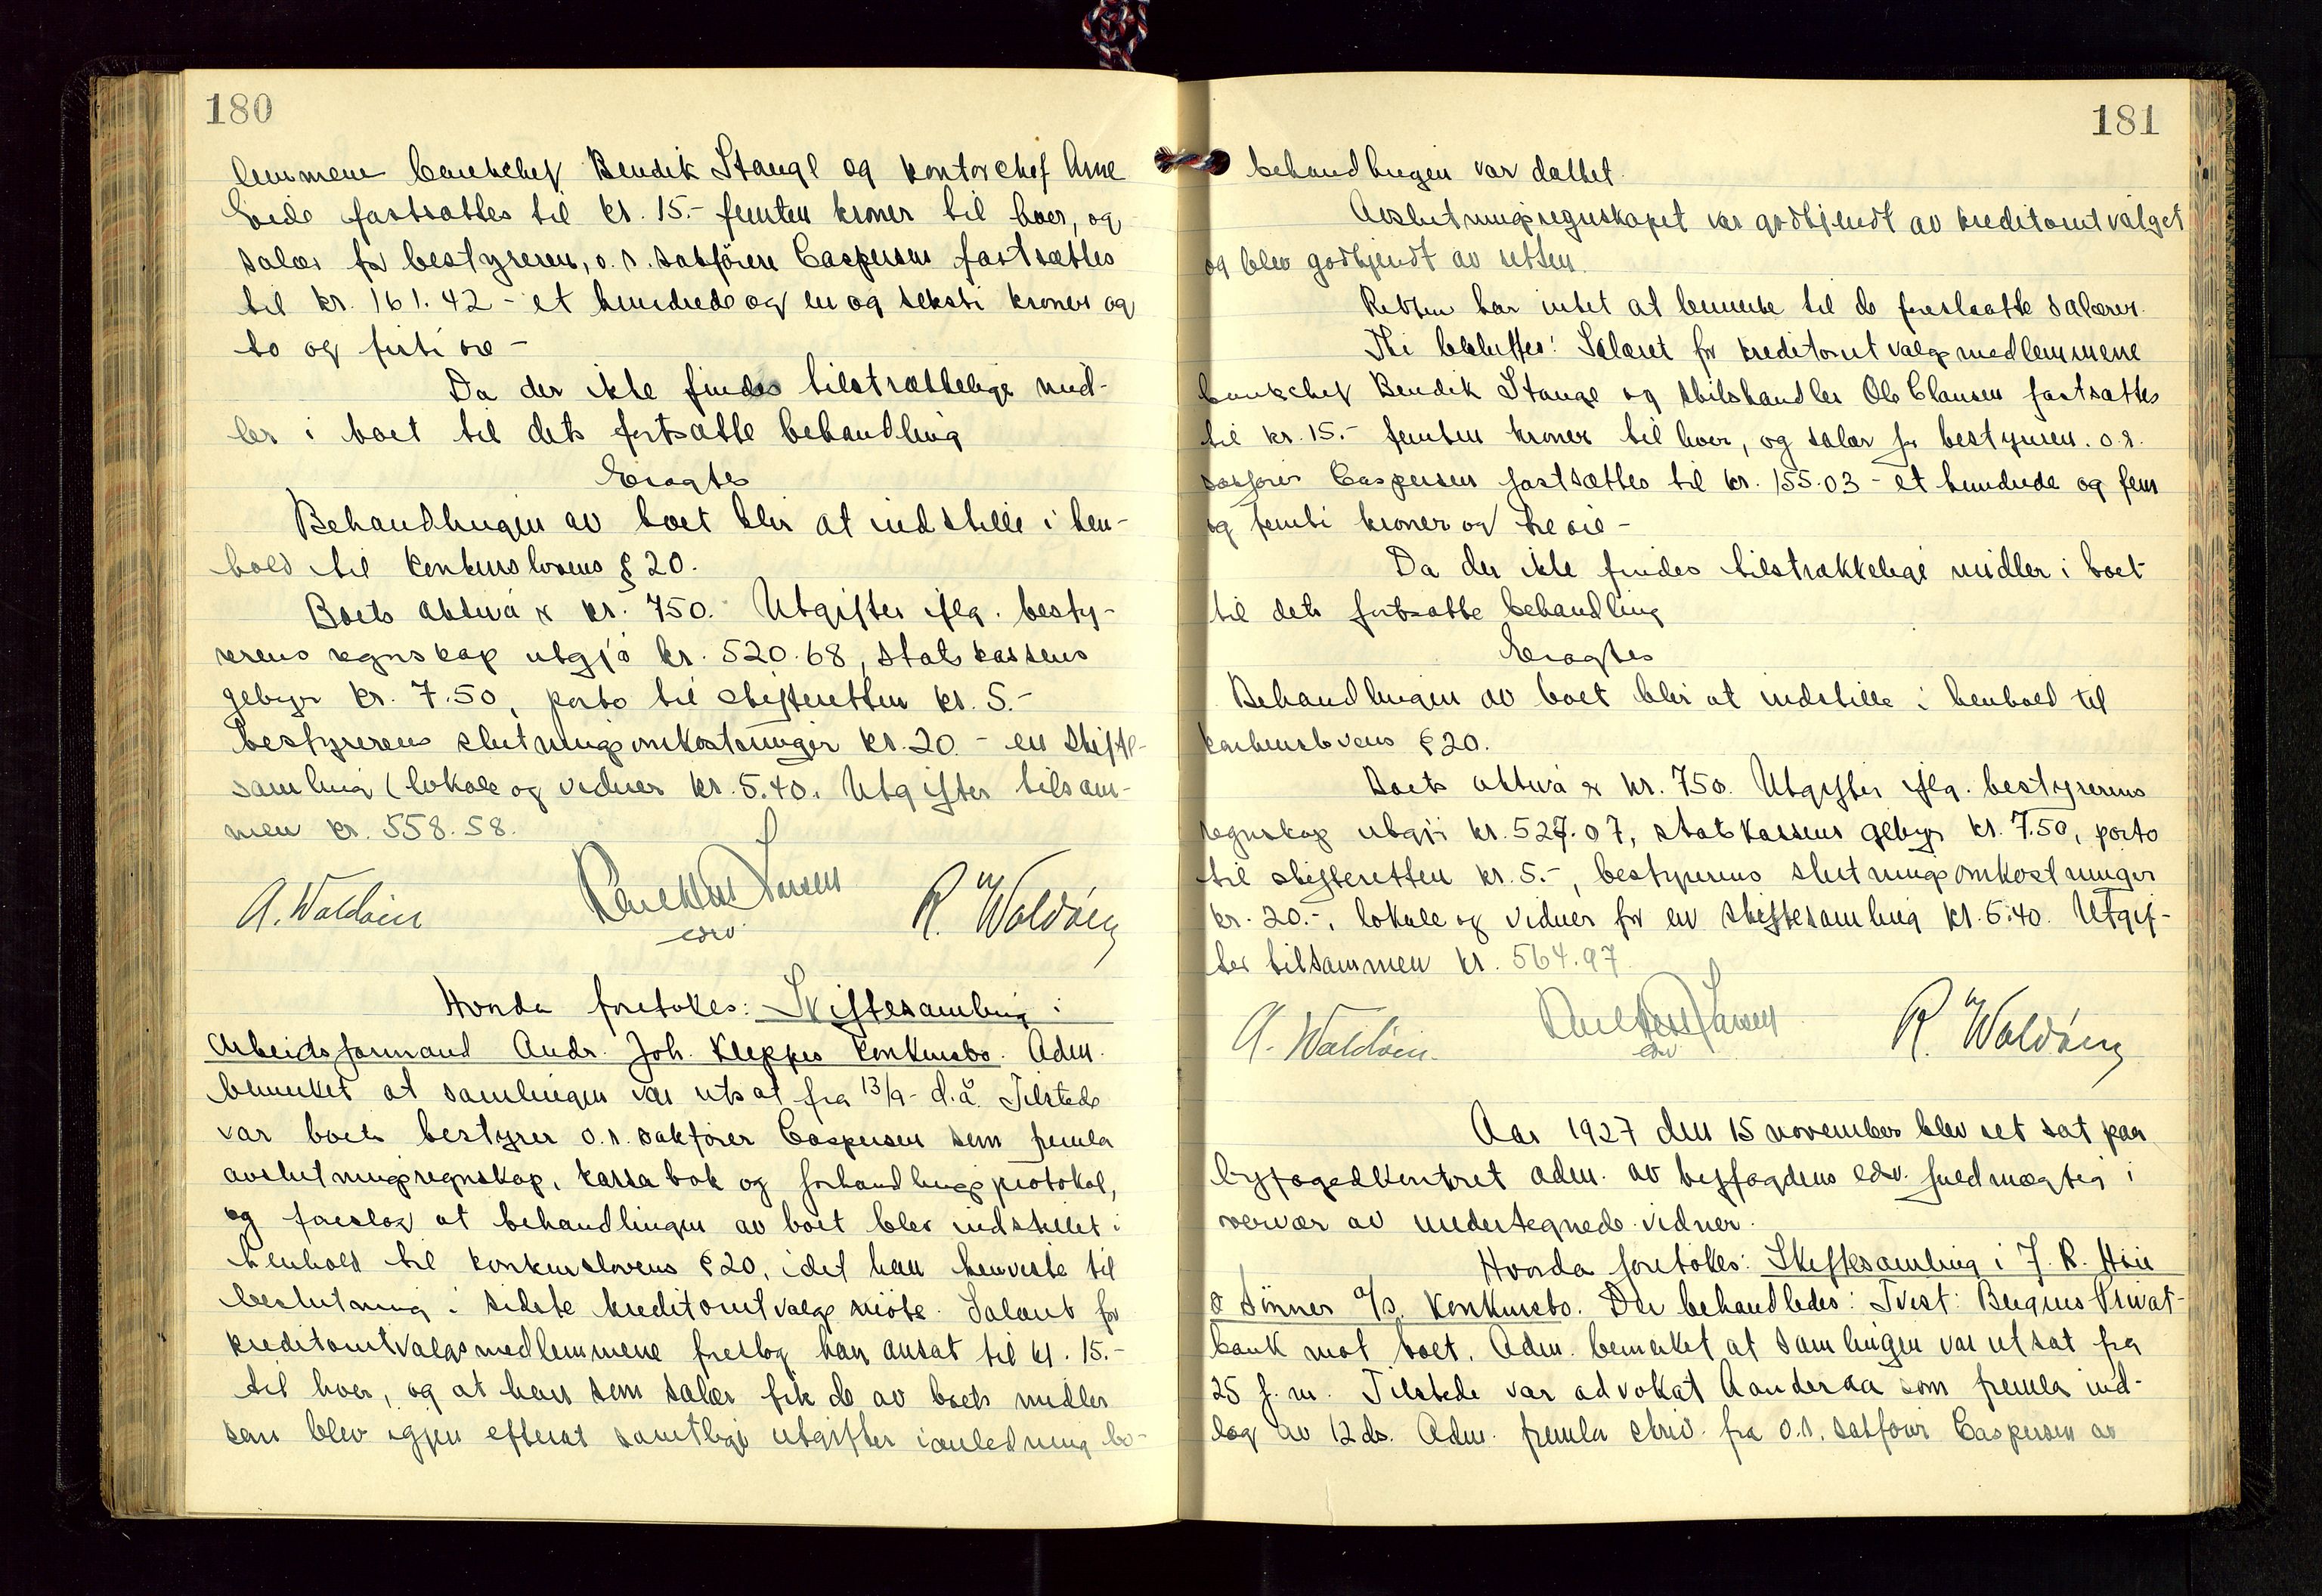 180
lemmene bankchef Bendik Stange og kontorchef Arne
Eide fastsættes til kr. 15.- femten kroner til hver, og
salær for bestyreren, o.r.sakförer Caspersen fastsættes
til kr. 161.42 - et hundrede og en og seksti kroner og
to og firti øre -
Da der ikke findes tilstrækkelige mid-
ler i boet til dets fortsatte behandling
Eragtes
Behandlingen av boet blir at indstille i hen-
hold til konkurslovens § 20.
Boets aktiva er kr. 750. Utgifter iflg. besty-
rerens regnskap utgjø kr. 520.68, statskassens
gebyr kr. 7.50, porto til skifteretten kr. 5.-
bestyrerens slutningsomkostninger kr. 20 - en skifte-
samling (lokale og vidner kr. 5.40. Utgifter tilsam-
men kr. 558.58.
A. Waldøin Larsen R. Waldöin
esv.
Hvorda foretokes: Skiftesamling i
Arbeidsformand Andr. Joh. Kleppes konkursbo. Adm.
bemerket at samlingen var utsat fra 13/9- d.å. Tilstede
var boets bestyrer o.r. sakfører Caspersen som fremla
avslutningsregnskap, kassabok og forhandlingsprotokol,
og foreslog at behandlingen av boet blev indstillet i
henhold til konkurslovens § 20, idet han henviste til
beslutning i sidste kreditorutvalgsmöte. Salært for
kreditorutvalgsmedlemmene foreslog han ansat til kr. 15.-
til hver, og at han som salær fik de av boets midler
som blev igjen efterat samtlige utgifter i anledning bo-
181
behandlingen var dækket.
Avslutningsregnskapet var godkjendt av kreditorutvalget
og blev godkjendt av retten.
Retten har intet at bemerke til de foreslaatte salærer.
Thi besluttes: Salæret for kreditorutvalgsmedlemmene
bankchef Bendik Stange og skibshandler Ole Clausen fastsættes
til kr. 15.- femten kroner til hver, og salær for bestyreren. o.r.
sakfører Caspersen fastsættes til kr. 155.03 - et hundrede og fem
og femti kroner og tre øre -
Da der ikke findes tilstrækkelige midler i boet
til dets fortsatte behandling
Eragtes
Behandlingen av boet blir at indstille i henhold til
konkurslovens § 20.
Boets aktiva er kr. 750. Utgifter iflg. bestyrerens
regnskap utgjø kr. 527.07, statskassens gebyr kr. 7.50, porto
til skifteretten kr. 5.-, bestyrerens slutningsomkostninger
kr. 20.-, lokale og vidner for en skiftesamling kr. 5.40. Utgif-
ter tilsammen kr. 564.97
A. Waldøin Larsen R. Waldöin
esv
Aar 1927 den 15 november blev ret sat paa
byfogedkontoret adm. av byfogdens edsv. fuldmægtig i
overvær av undertegnede vidner.
Hvorda foretokes: Skiftesamling i J. R. Høie
& Sönner a/s. konkursbo. Der behandledes: Tvist: Bergens Privat-
bank mot boet. Adm. bemerket at samlingen var utsat fra
25 f.m. Tilstede var advokat Aanderaa som fremla ind-
læg av 12 ds. Adm. fremla skriv. fra o.r. sakfører Caspersen av